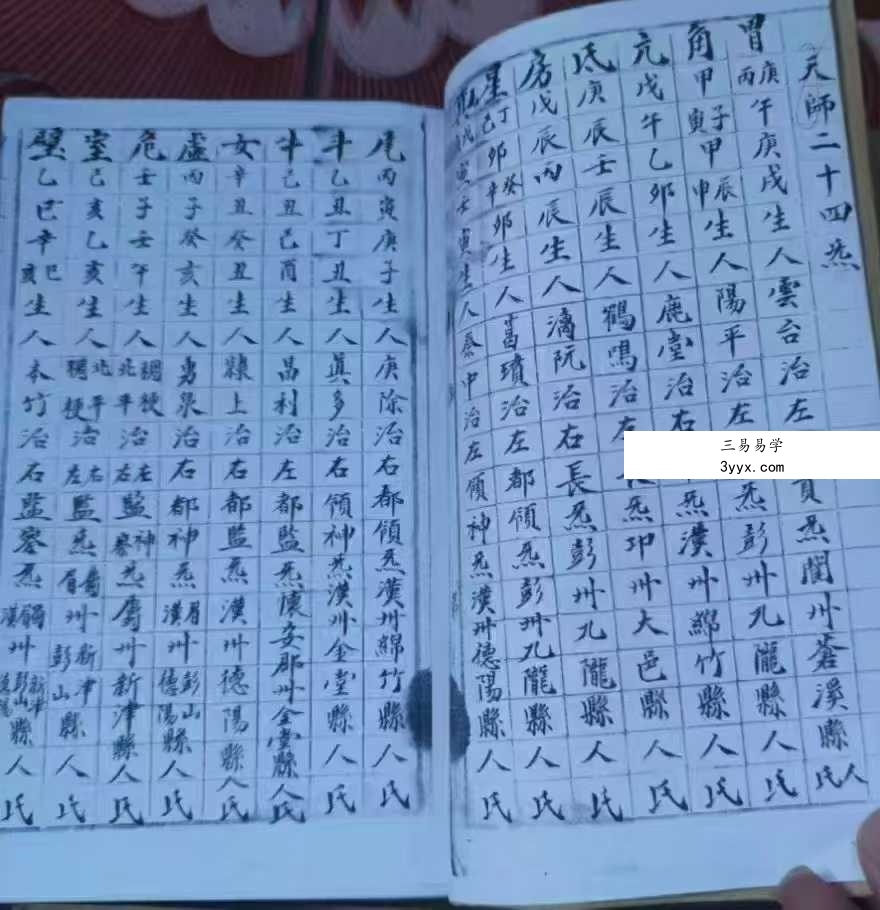 天師二十四炁
胃庚丙午庚戌生人雲台治左貢炁閬州蒼溪縣人氏
角甲子寅甲辰申生人陽平治左炁彭州九隴縣人氏
亢戊午乙卯生人鹿堂治右炁漢州綿竹縣人氏
氐庚辰壬辰生人鶴鳴治左炁邛州大邑縣人氏
房戊辰丙辰生人漓阮治右長炁彭州九隴縣人氏
星丁己卯癸辛卯生人葛璝治左都領炁彭州九隴縣人氏
戊寅壬寅生人秦中治左領神炁漢州德陽縣人氏
尾丙寅庚子生人庚除治右都領炁漢州綿竹縣人氏
斗乙丑丁丑生人真多治右領神炁漢州金堂縣人氏
牛己丑己酉生人昌利治左都監炁懷安郡州金堂縣人氏
女辛丑癸丑生人隸上治右都監炁漢州德陽縣人氏
虛丙子癸亥生人勇泉治右都神炁眉漢州彭山德陽縣人氏
危壬子壬午生人稠稉北平治左右監神察炁州新津縣人氏
室己亥乙亥生人北平稠梗治右左監炁眉州新津彭山縣人氏
壁乙巳辛巳亥生人本竹治右監察炁漢州新津彭山縣人氏
三易易学
3yyx.com